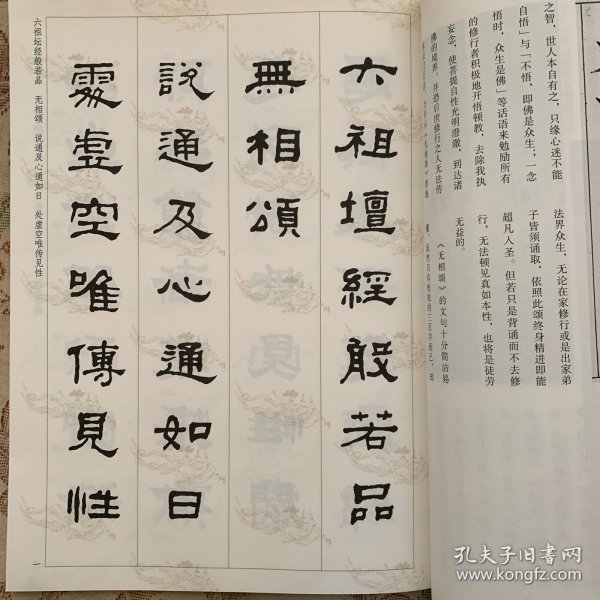 之智，世人本自有之，只缘心迷不能
自悟」与「不悟，即佛是众生；一念
悟时，众生是佛」等话语来勉励所有
的修行者积极地开悟顿教，去除我执
妄念，使菩提自性光明澄澈，到达诸
佛的境界。并恐后世修行之人无法传
法界众生，无论在家修行或是出家弟
子皆须诵取，依照此颂终身精进即能
超凡人圣。但若只是背诵而不去修
行，无法顿见真如本性，也将是徒劳
无益的。
《无相颂》的文句十分简洁易
六祖壇經般若品
無相頌
說通及心通如日
處虛空唯傳見性
六祖坛经般若品　无相颂　说通及心通如日　处虚空唯传见性
一
孔夫子旧书网
www.kongfz.com